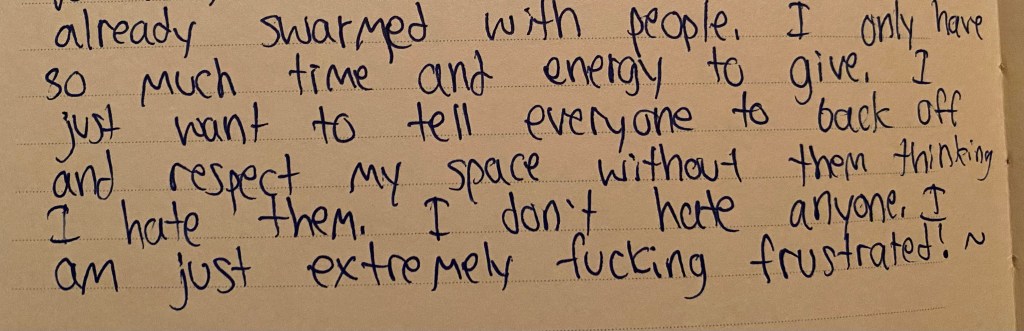 already swarmed with people. I only have
so much time and energy to give. I
just want to tell everyone to back off
and respect my space without them thinking
I hate them. I don't hate anyone. I
am just extremely fucking frustrated! ~